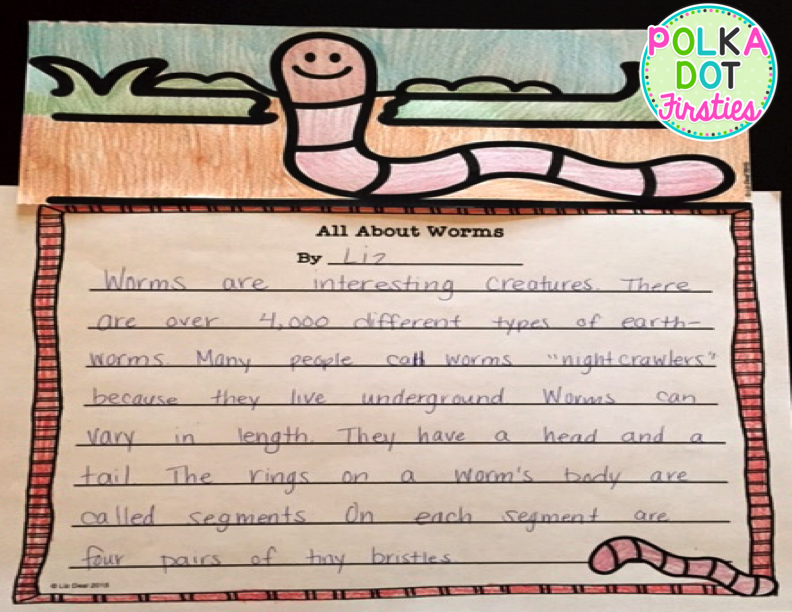 POLKA
DOT
Firsties
All About Worms
By Liz
Worms are interesting creatures. There
are over 4,000 different types of earth-
worms. Many people call worms "nightcrawlers"
because they live underground. Worms can
vary in length. They have a head and a
tail. The rings on a worm's body are
called segments. On each segment are
four pairs of tiny bristles.